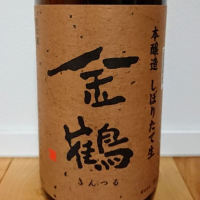 本醸造 しぼりたて生
金鶴
きんつる